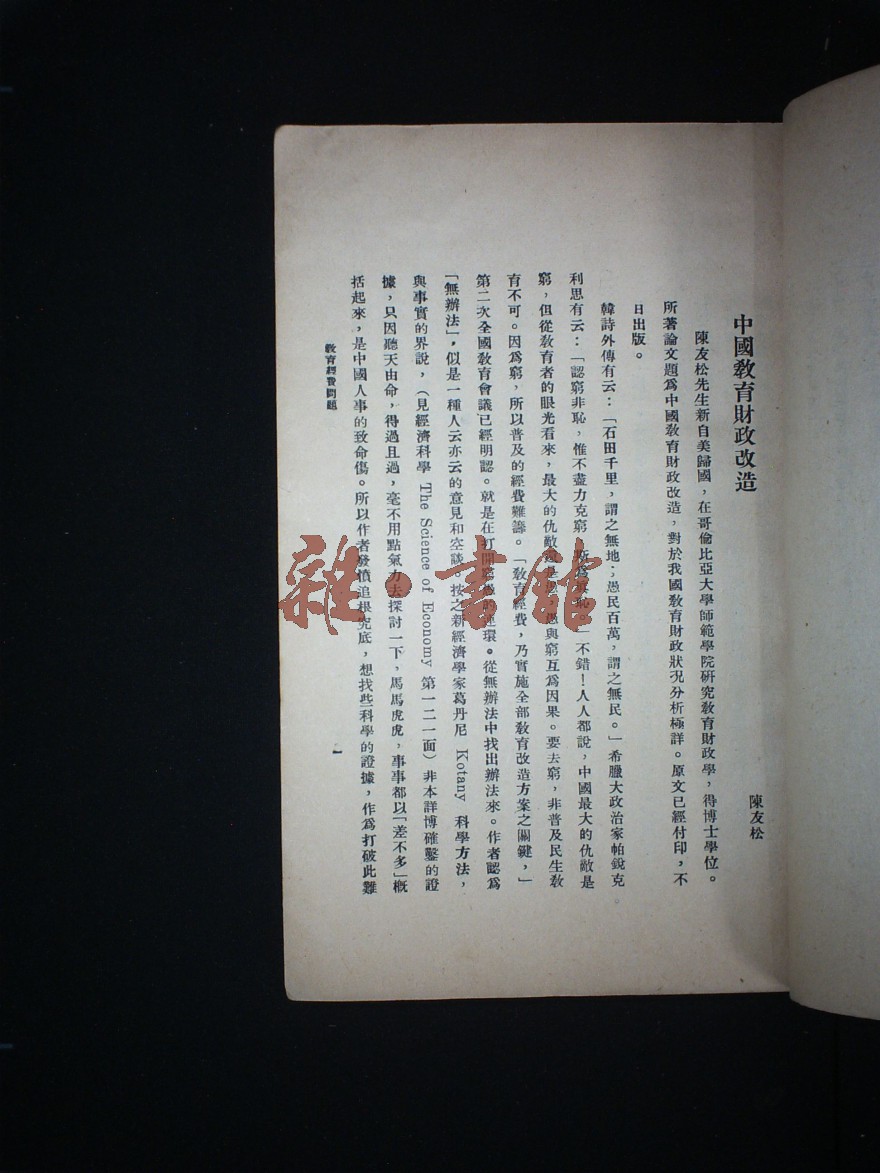 中國教育財政改造
陳友松
陳友松先生新自美歸國，在哥倫比亞大學師範學院研究教育財政學，得博士學位。
所著論文題爲中國教育財政改造，對於我國教育財政狀況分析極詳。原文已經付印，不
日出版。
韓詩外傳有云：「石田千里，謂之無地；愚民百萬，謂之無民。」希臘大政治家帕銳克
利思有云：「認窮非恥，惟不盡力克窮，斯爲恥。」不錯！人人都說，中國最大的仇敵是
窮，但從教育者的眼光看來，最大的仇敵還是愚。愚與窮互爲因果。要去窮，非普及民生教
育不可。因爲窮，所以普及的經費難籌。「教育經費，乃實施全部教育改造方案之關鍵，」
第二次全國教育會議已經明認。就是在打開的連環。從無辦法中找出辦法來。作者認爲
「無辦法」，似是一種人云亦云的意見和空談。按之新經濟學家葛丹尼 Kotany 科學方法，
與事實的界說，（見經濟科學 The Science of Economy 第一二一面）非本詳博確鑿的證
據，只因聽天由命，得過且過，毫不用點氣力去探討一下，馬馬虎虎，事事都以「差不多」概
括起來，是中國人事的致命傷。所以作者發憤追根究底，想找些科學的證據，作爲打破此難
教育經費問題
一
雜·書館